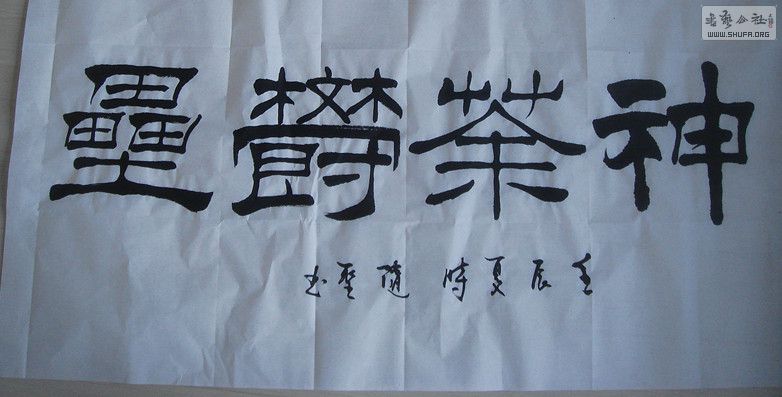 神荼欝壘
壬辰夏時隨聖书
書藝公社
WWW.SHUFA.ORG